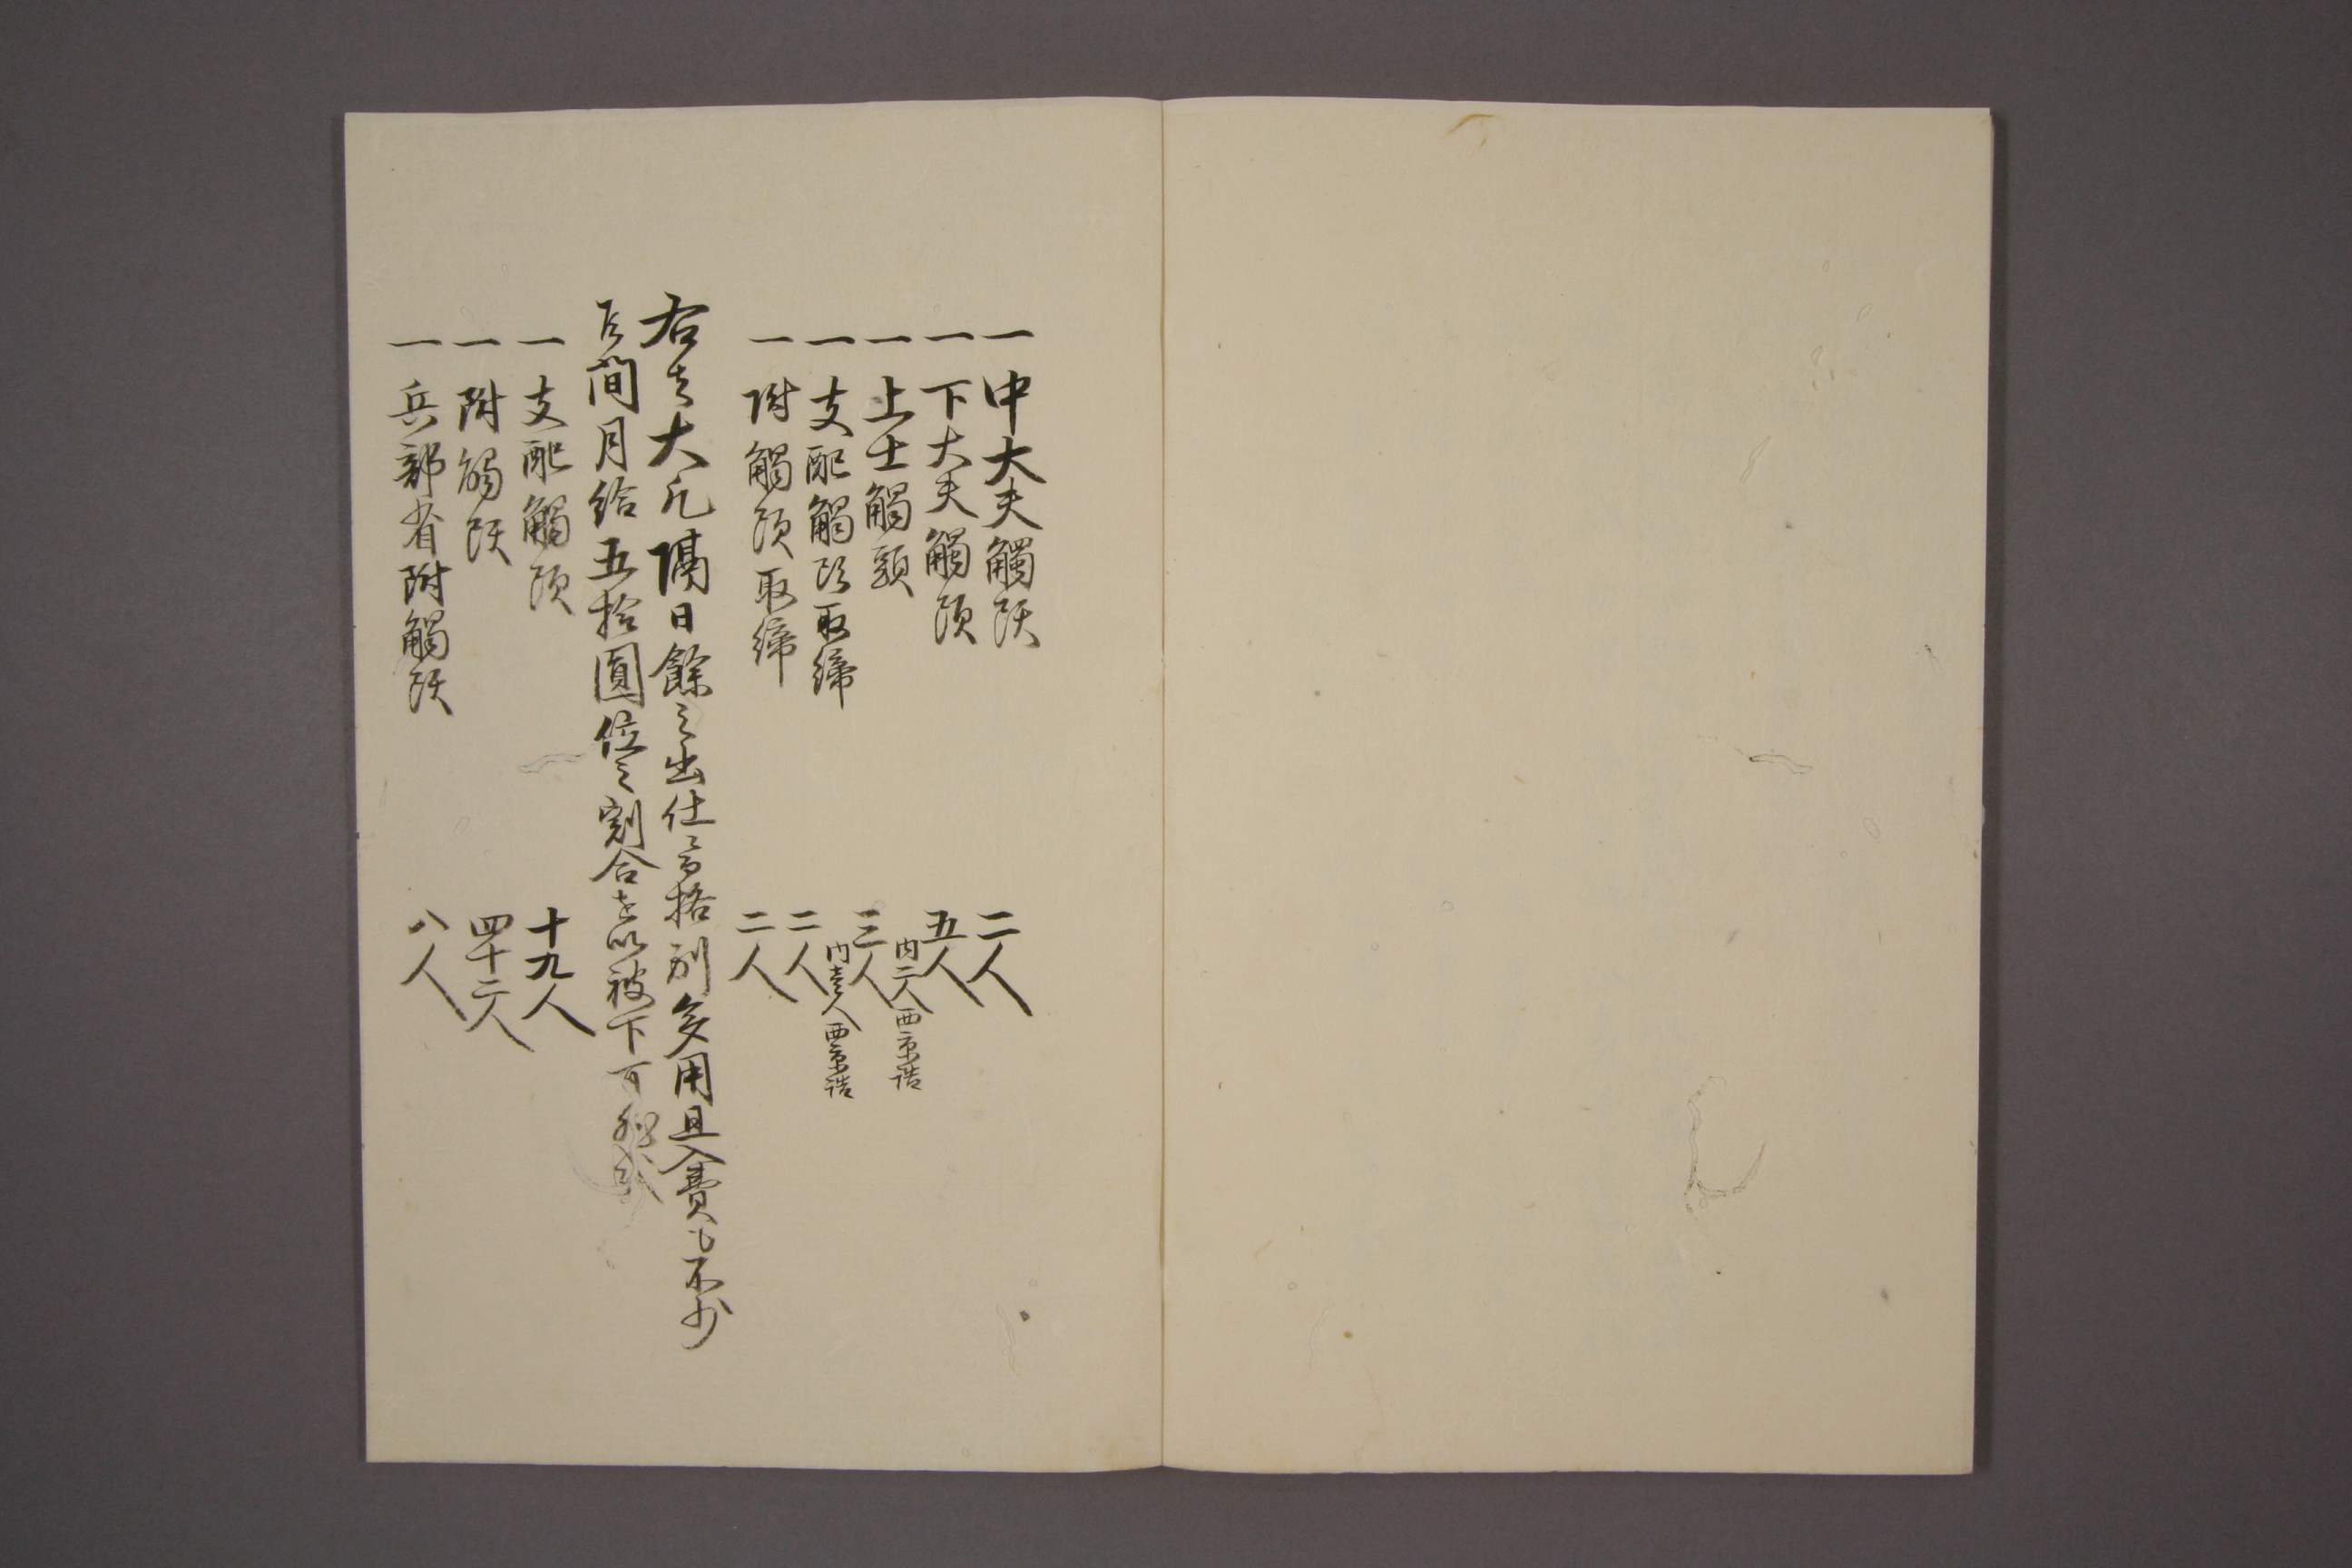 一中大夫觸頭　二人
一下大夫觸頭　五人
内二人西京詰
一上士觸頭　三人
内壱人西京詰
一支配觸頭取締　二人
一附觸頭取締　二人
右者大凡隔日餘之出仕ニ而格別多用且入費も不少
候間月給五拾圓位之割合を以被下可然哉
一支配觸頭　十九人
一附觸頭　四十二人
一兵部省附觸頭　八人